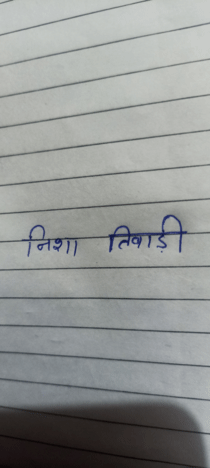 निशा तिवाड़ी